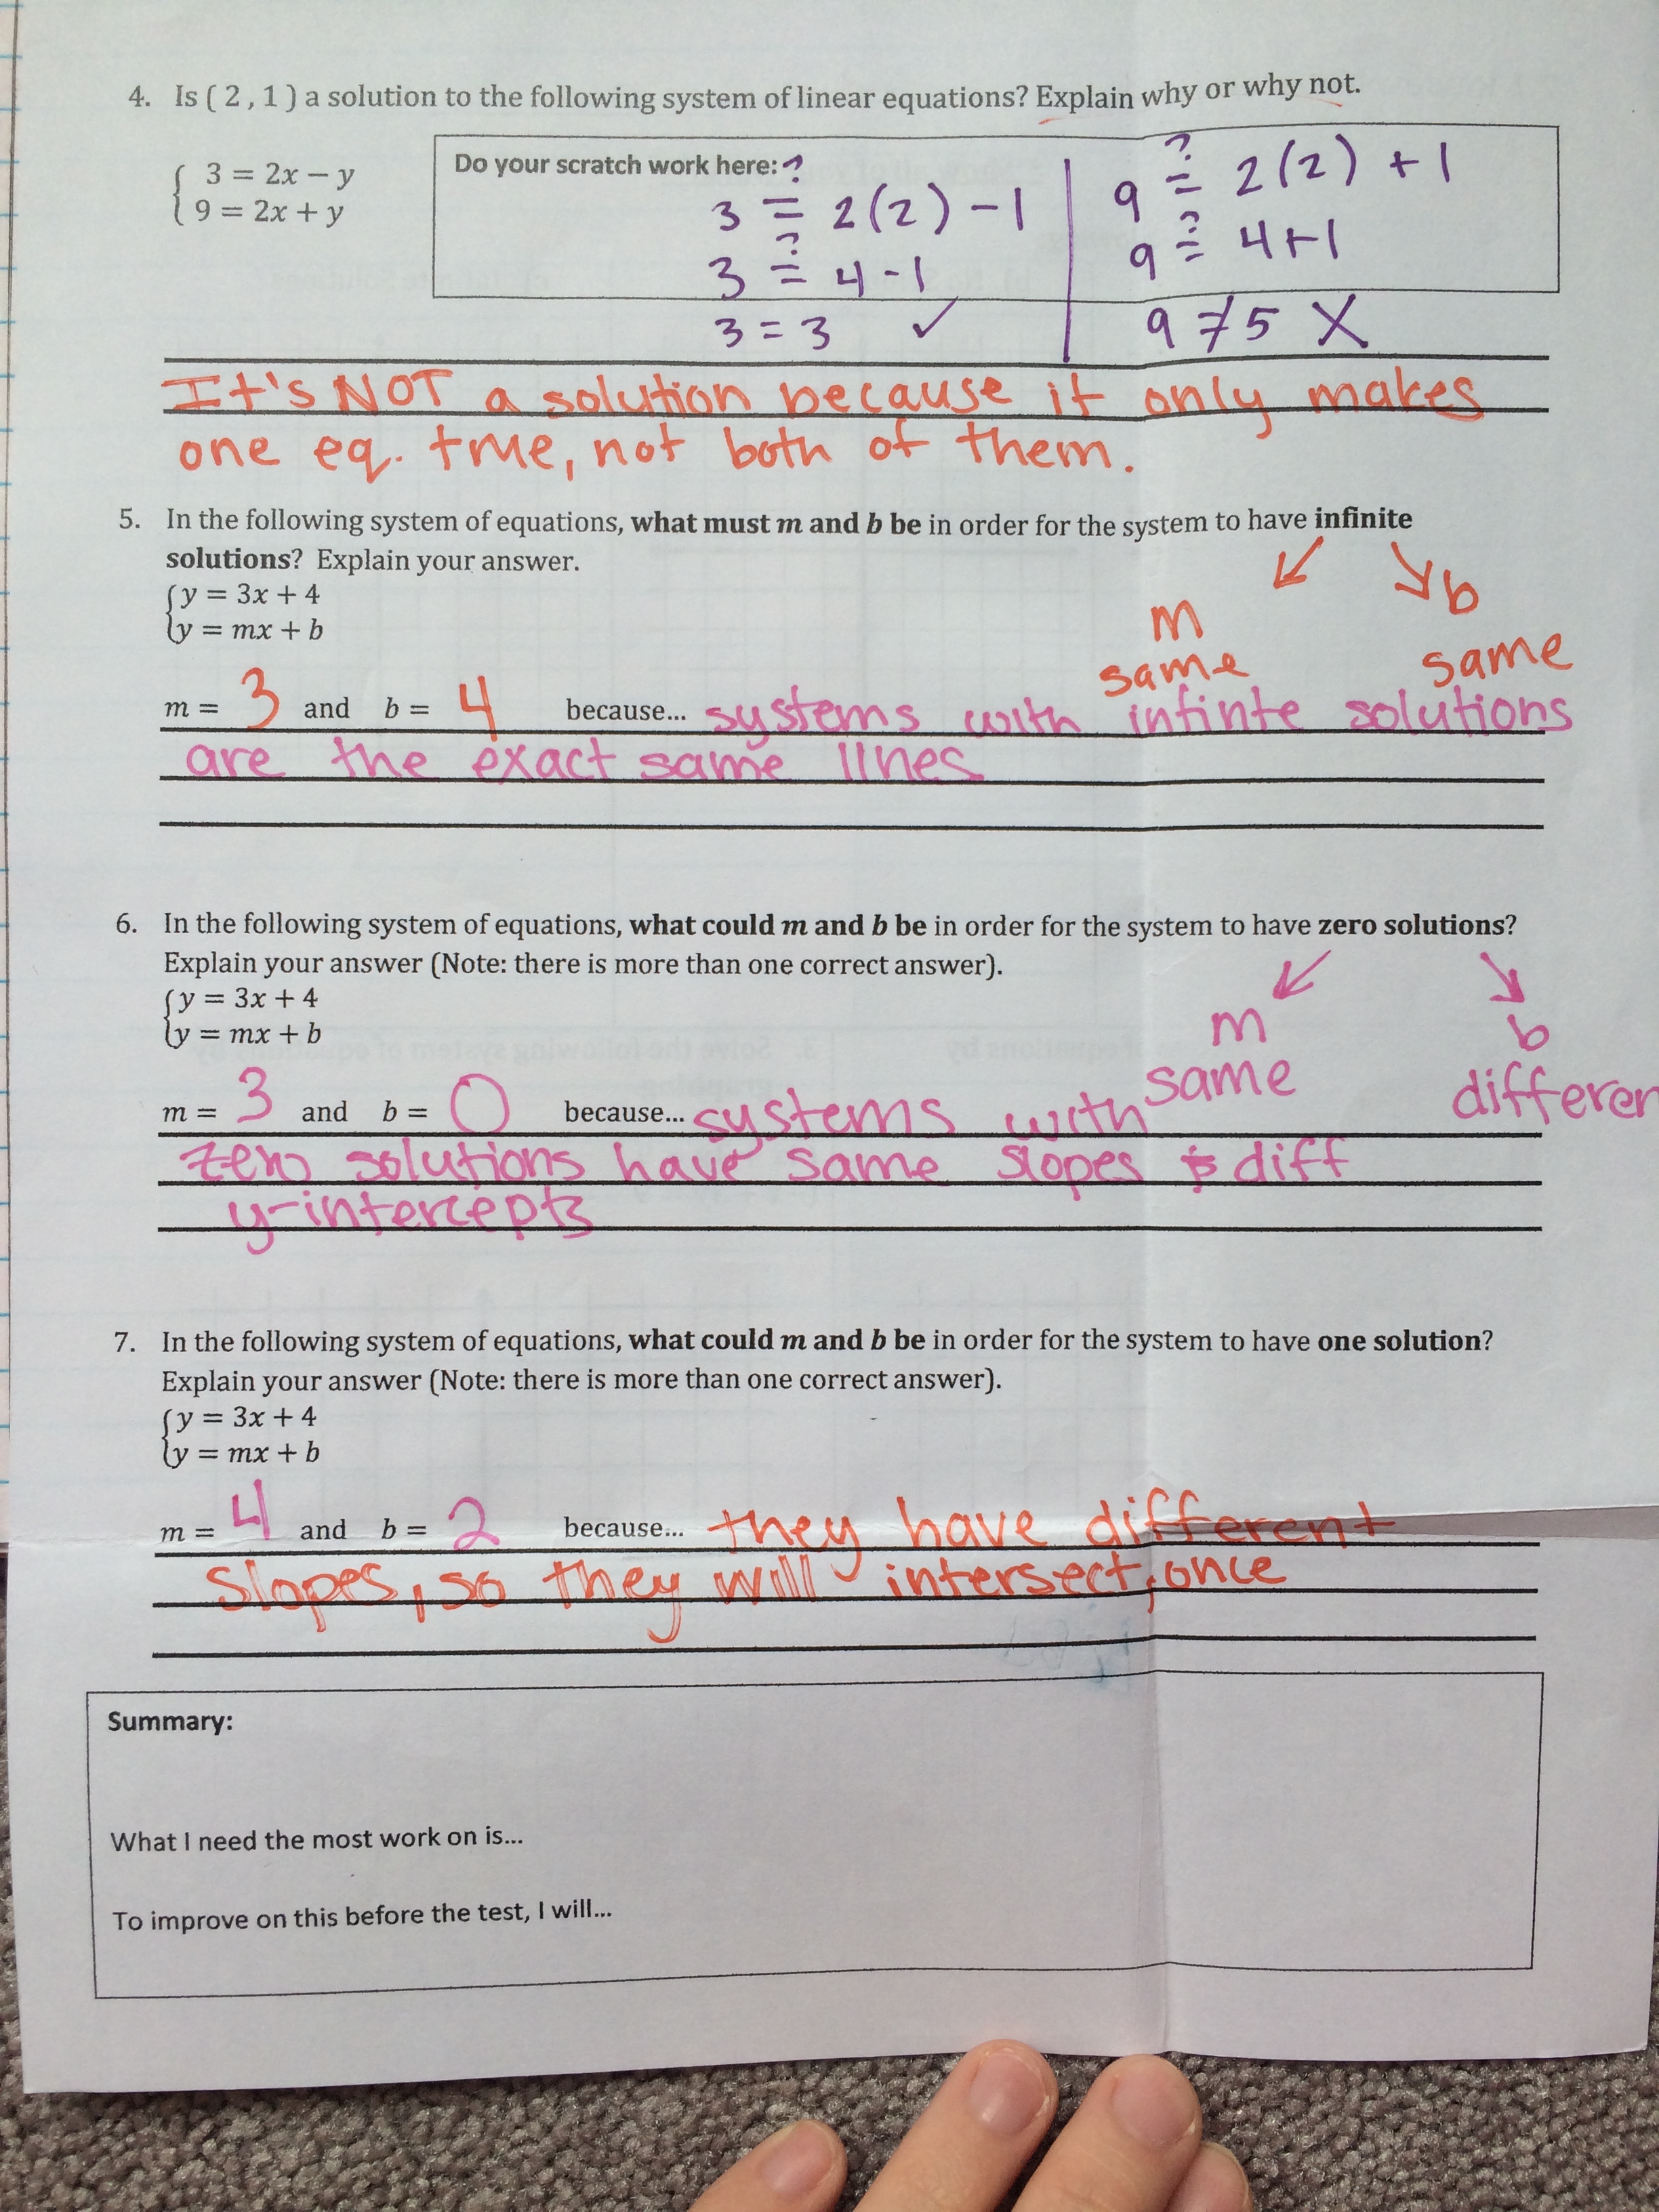 4. Is ( 2 , 1 ) a solution to the following system of linear equations? Explain why or why not.
3 = 2x − y
9 = 2x + y
Do your scratch work here:
3 ≟ 2(2) - 1
3 ≟ 4 - 1
3 = 3 ✓
9 ≟ 2(2) + 1
9 ≟ 4+1
9 ≠ 5 X
It's NOT a solution because it only makes
one eq. true, not both of them.
5. In the following system of equations, what must m and b be in order for the system to have infinite
solutions? Explain your answer.
y = 3x + 4
y = mx + b
m b
same same
m = 3 and b = 4 because... systems with infinte solutions
are the exact same lines
6. In the following system of equations, what could m and b be in order for the system to have zero solutions?
Explain your answer (Note: there is more than one correct answer).
y = 3x + 4
y = mx + b
m b
same differen
m = 3 and b = 0 because... systems with
zero solutions have same slopes & diff
y-intercepts
7. In the following system of equations, what could m and b be in order for the system to have one solution?
Explain your answer (Note: there is more than one correct answer).
y = 3x + 4
y = mx + b
m = 4 and b = 2 because... they have different
slopes, so they will intersect once
Summary:
What I need the most work on is...
To improve on this before the test, I will...